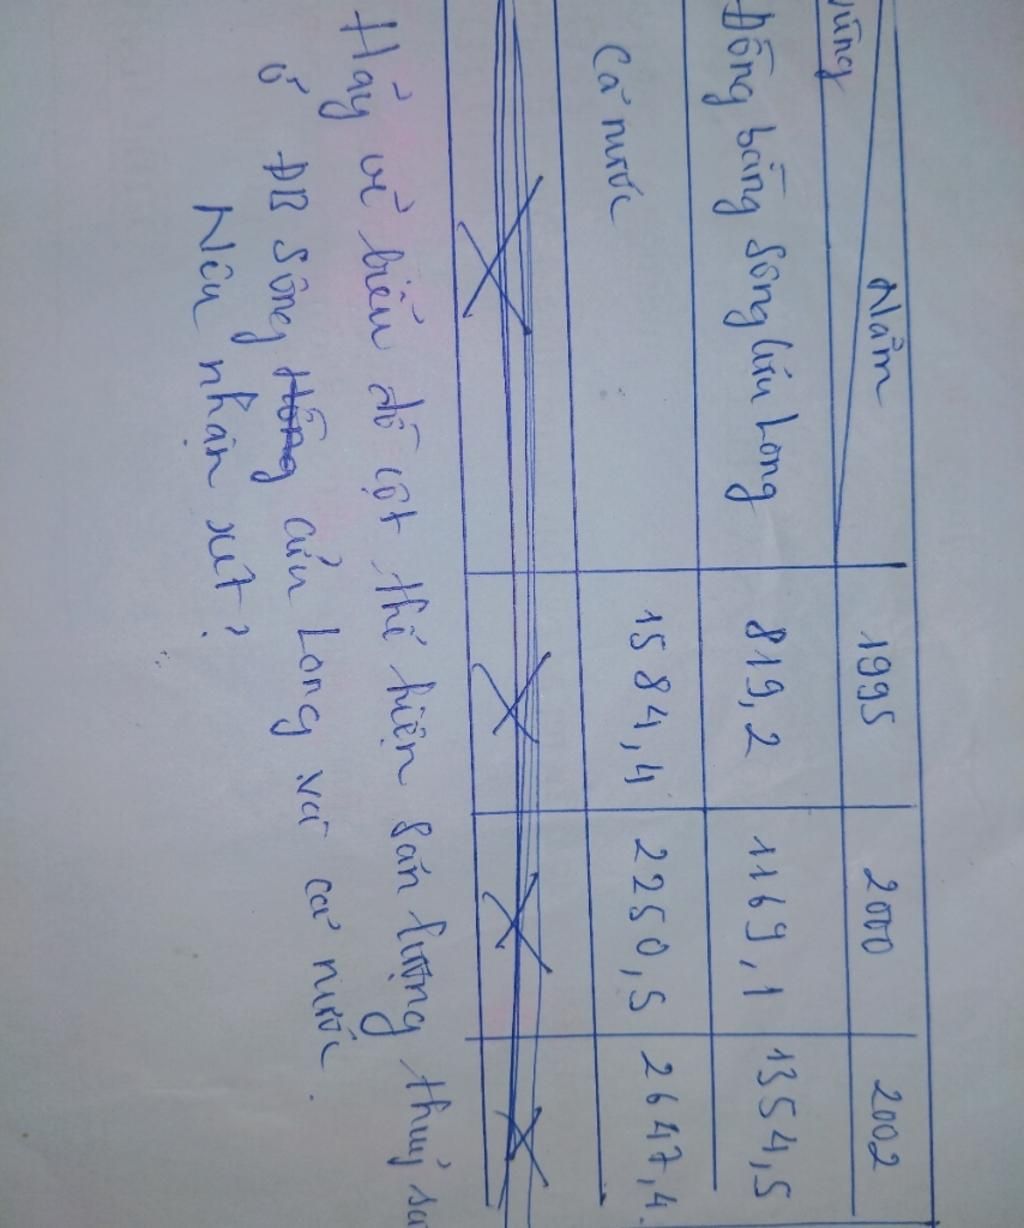 Năm
Vùng
1995
2000
2002
Đồng bằng Sông Cửu Long
819,2
1169,1
1354,5
Cả nước
1584,4
2250,5
2647,4.
Hãy vẽ biểu đồ cột thể hiện sản lượng thuỷ
ở ĐB Sông Hồng Cửu Long và cả nước.
Nêu nhận xét?